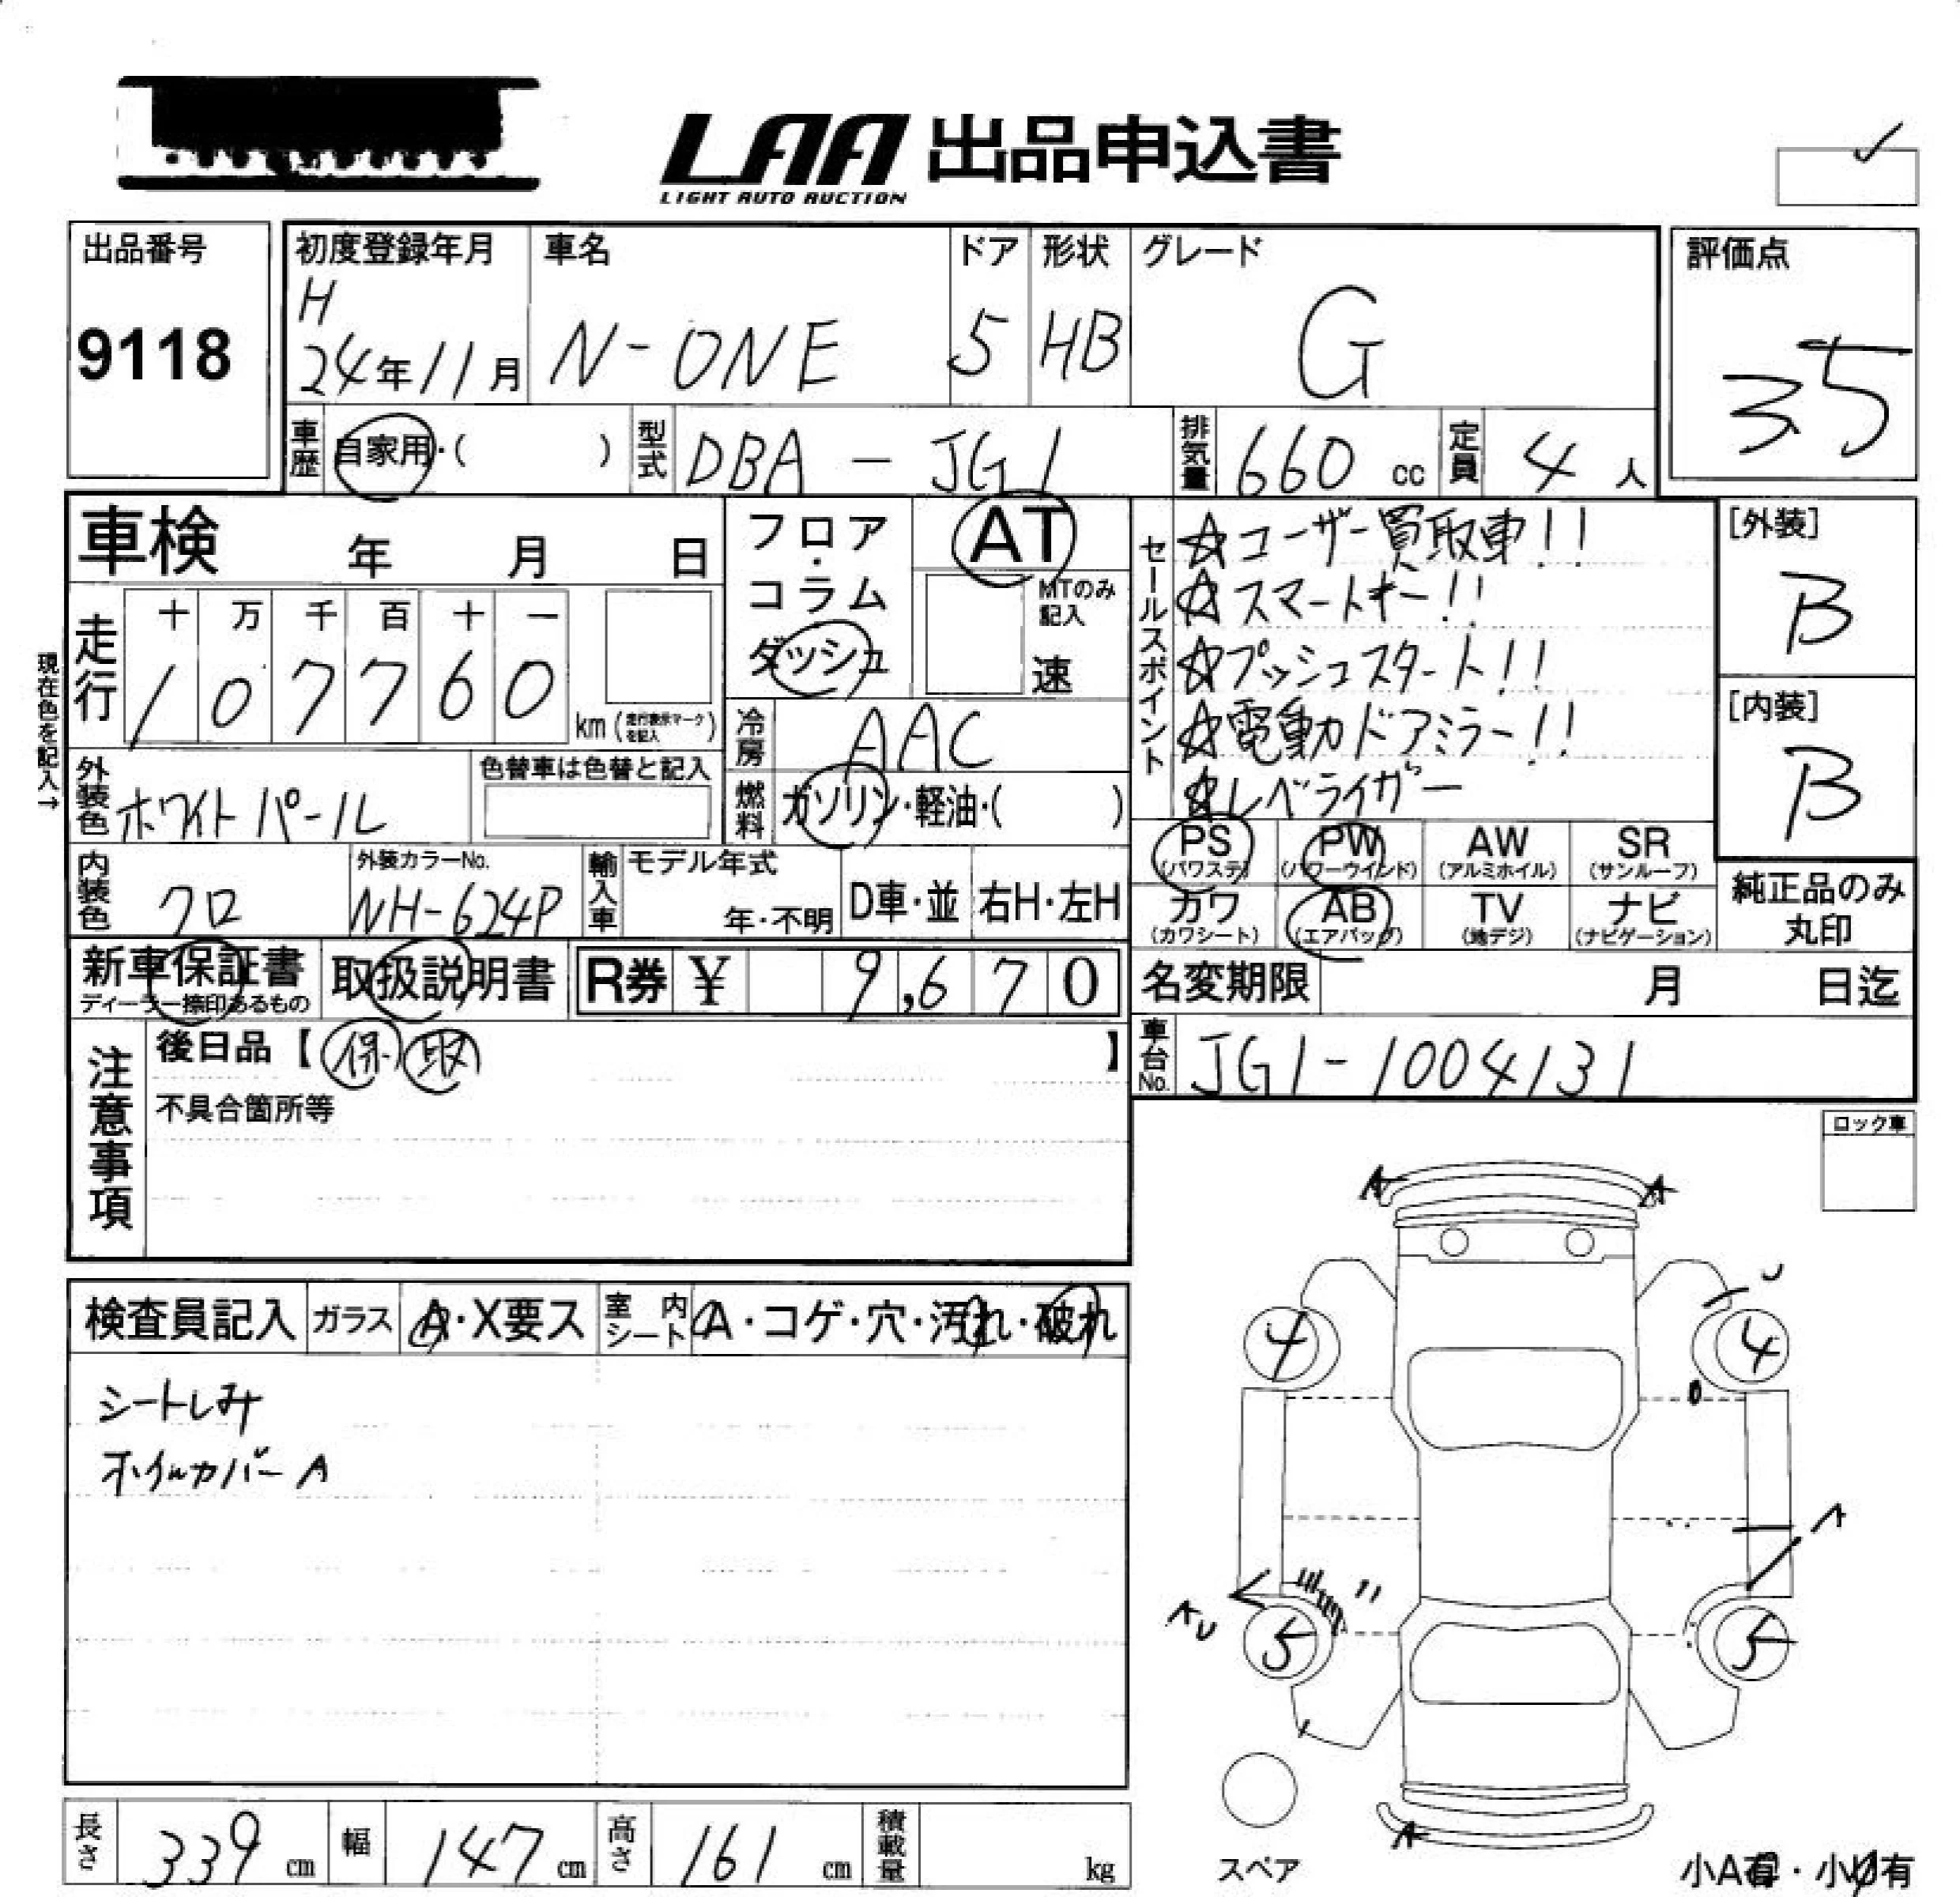 LAA 出品申込書
LIGHT AUTO AUCTION
出品番号
9118
初度登録年月
H
24年11月
車名
N-ONE
ドア
5
形状
HB
グレード
G
評価点
35
車歴
自家用・( )
型式
DBA-JG1
排気量
660 cc
定員
4 人
車検 年 月 日
フロア・コラム
ダッシュ
AT
MTのみ記入
速
セールスポイント
☆ユーザー買取車!!
☆スマートキー!!
☆プッシュスタート!!
☆電動ドアミラー!!
☆レベライザー
[外装]
B
[内装]
B
現在色を記入→
走行
十 万 千 百 十 一
1 0 7 7 6 0
km (走行表示マークを記入)
冷房
AAC
燃料
ガソリン・軽油・( )
外装色
ホワイトパール
色替車は色替と記入
PS
(パワステ)
PW
(パワーウインド)
AW
(アルミホイル)
SR
(サンルーフ)
カワ
(カワシート)
AB
(エアバッグ)
TV
(地デジ)
ナビ
(ナビゲーション)
純正品のみ
丸印
内装色
クロ
外装カラーNo.
NH-624P
輸入車
モデル年式
年・不明
D車・並
右H・左H
新車保証書
ディーラー捺印あるもの
取扱説明書
R券 ¥ 9,670
名変期限 月 日迄
注意事項
後日品【 保 取 】
不具合箇所等
車台No.
JG1-1004131
ロック車
検査員記入
ガラス
A・X要ス
室内シート
A・コゲ・穴・汚れ・破れ
シートしみ
ホイルカバーA
A A
4 4
A
AU
5 5
A
スペア
小A有・小U有
長さ
339 cm
幅
147 cm
高さ
161 cm
積載量
kg